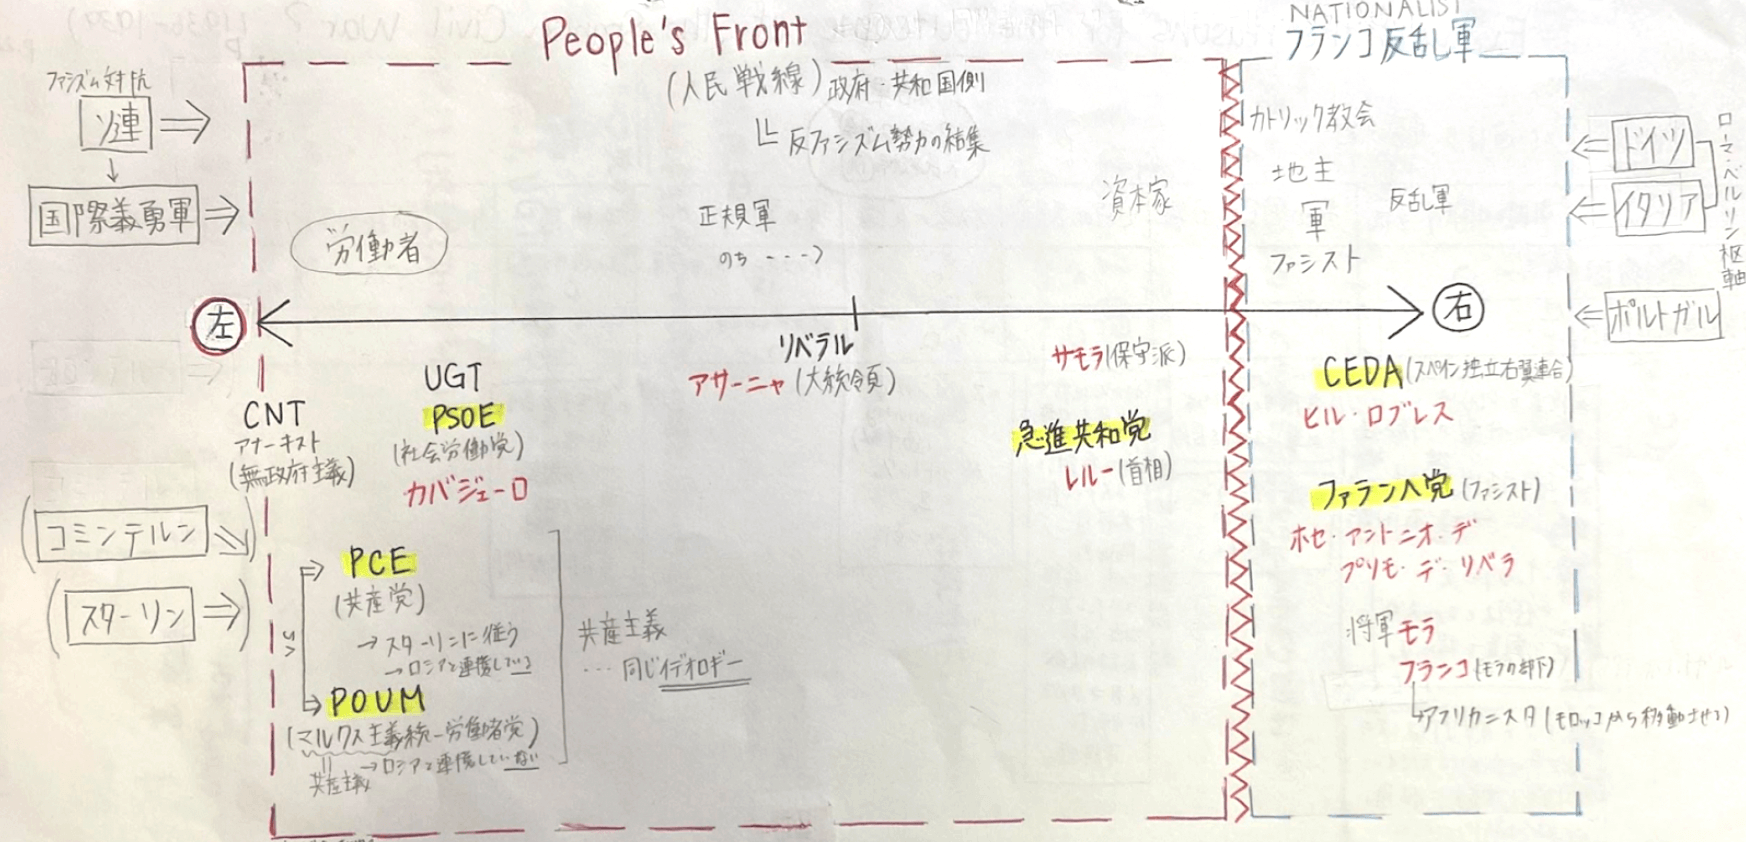 People's Front
(人民戦線)政府・共和国側
反ファシズム勢力の結集
NATIONALIST
フランコ反乱軍
ファシズム対抗
ソ連
国際義勇軍
労働者
正規軍
のち
資本家
カトリック教会
地主
軍
ファシスト
反乱軍
ドイツ
イタリア
ローマ・ベルリン枢軸
ポルトガル
左
右
リベラル
アサーニャ(大統領)
サモラ(保守派)
急進共和党
レルー(首相)
CEDA(スペイン独立右翼連合)
ヒル・ロブレス
ファランヘ党(ファシスト)
ホセ・アントニオ・デ
プリモ・デ・リベラ
将軍モラ
フランコ(モラの部下)
アフリカニスタ(モロッコから移動させる)
CNT
アナーキスト
(無政府主義)
UGT
PSOE
(社会労働党)
カバジェーロ
コミンテルン
スターリン
vs
PCE
(共産党)
→スターリンに従う
→ロシアと連携している
POUM
(マルクス主義統一労働者党)
→ロシアと連携していない
共産主義
共産主義
…同じイデオロギー